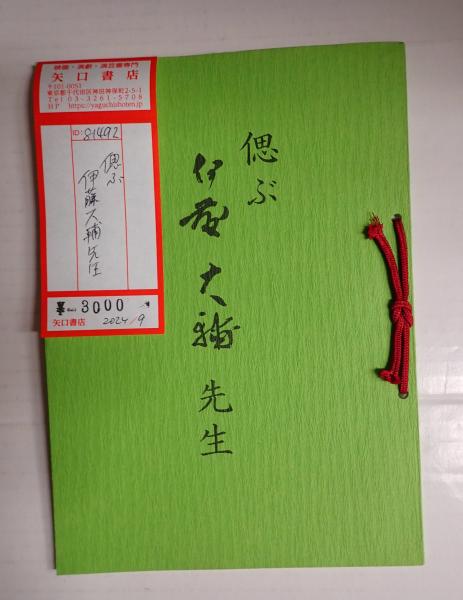 映画・演劇・演芸書専門
矢口書店
〒101-0051
東京都千代田区神田神保町2-5-1
Tel 03-3261-5708
HP https://yaguchishoten.jp
ID: 81492
偲ぶ
伊藤大輔先生
3000
矢口書店
2024/9
偲ぶ
伊藤大輔
先生